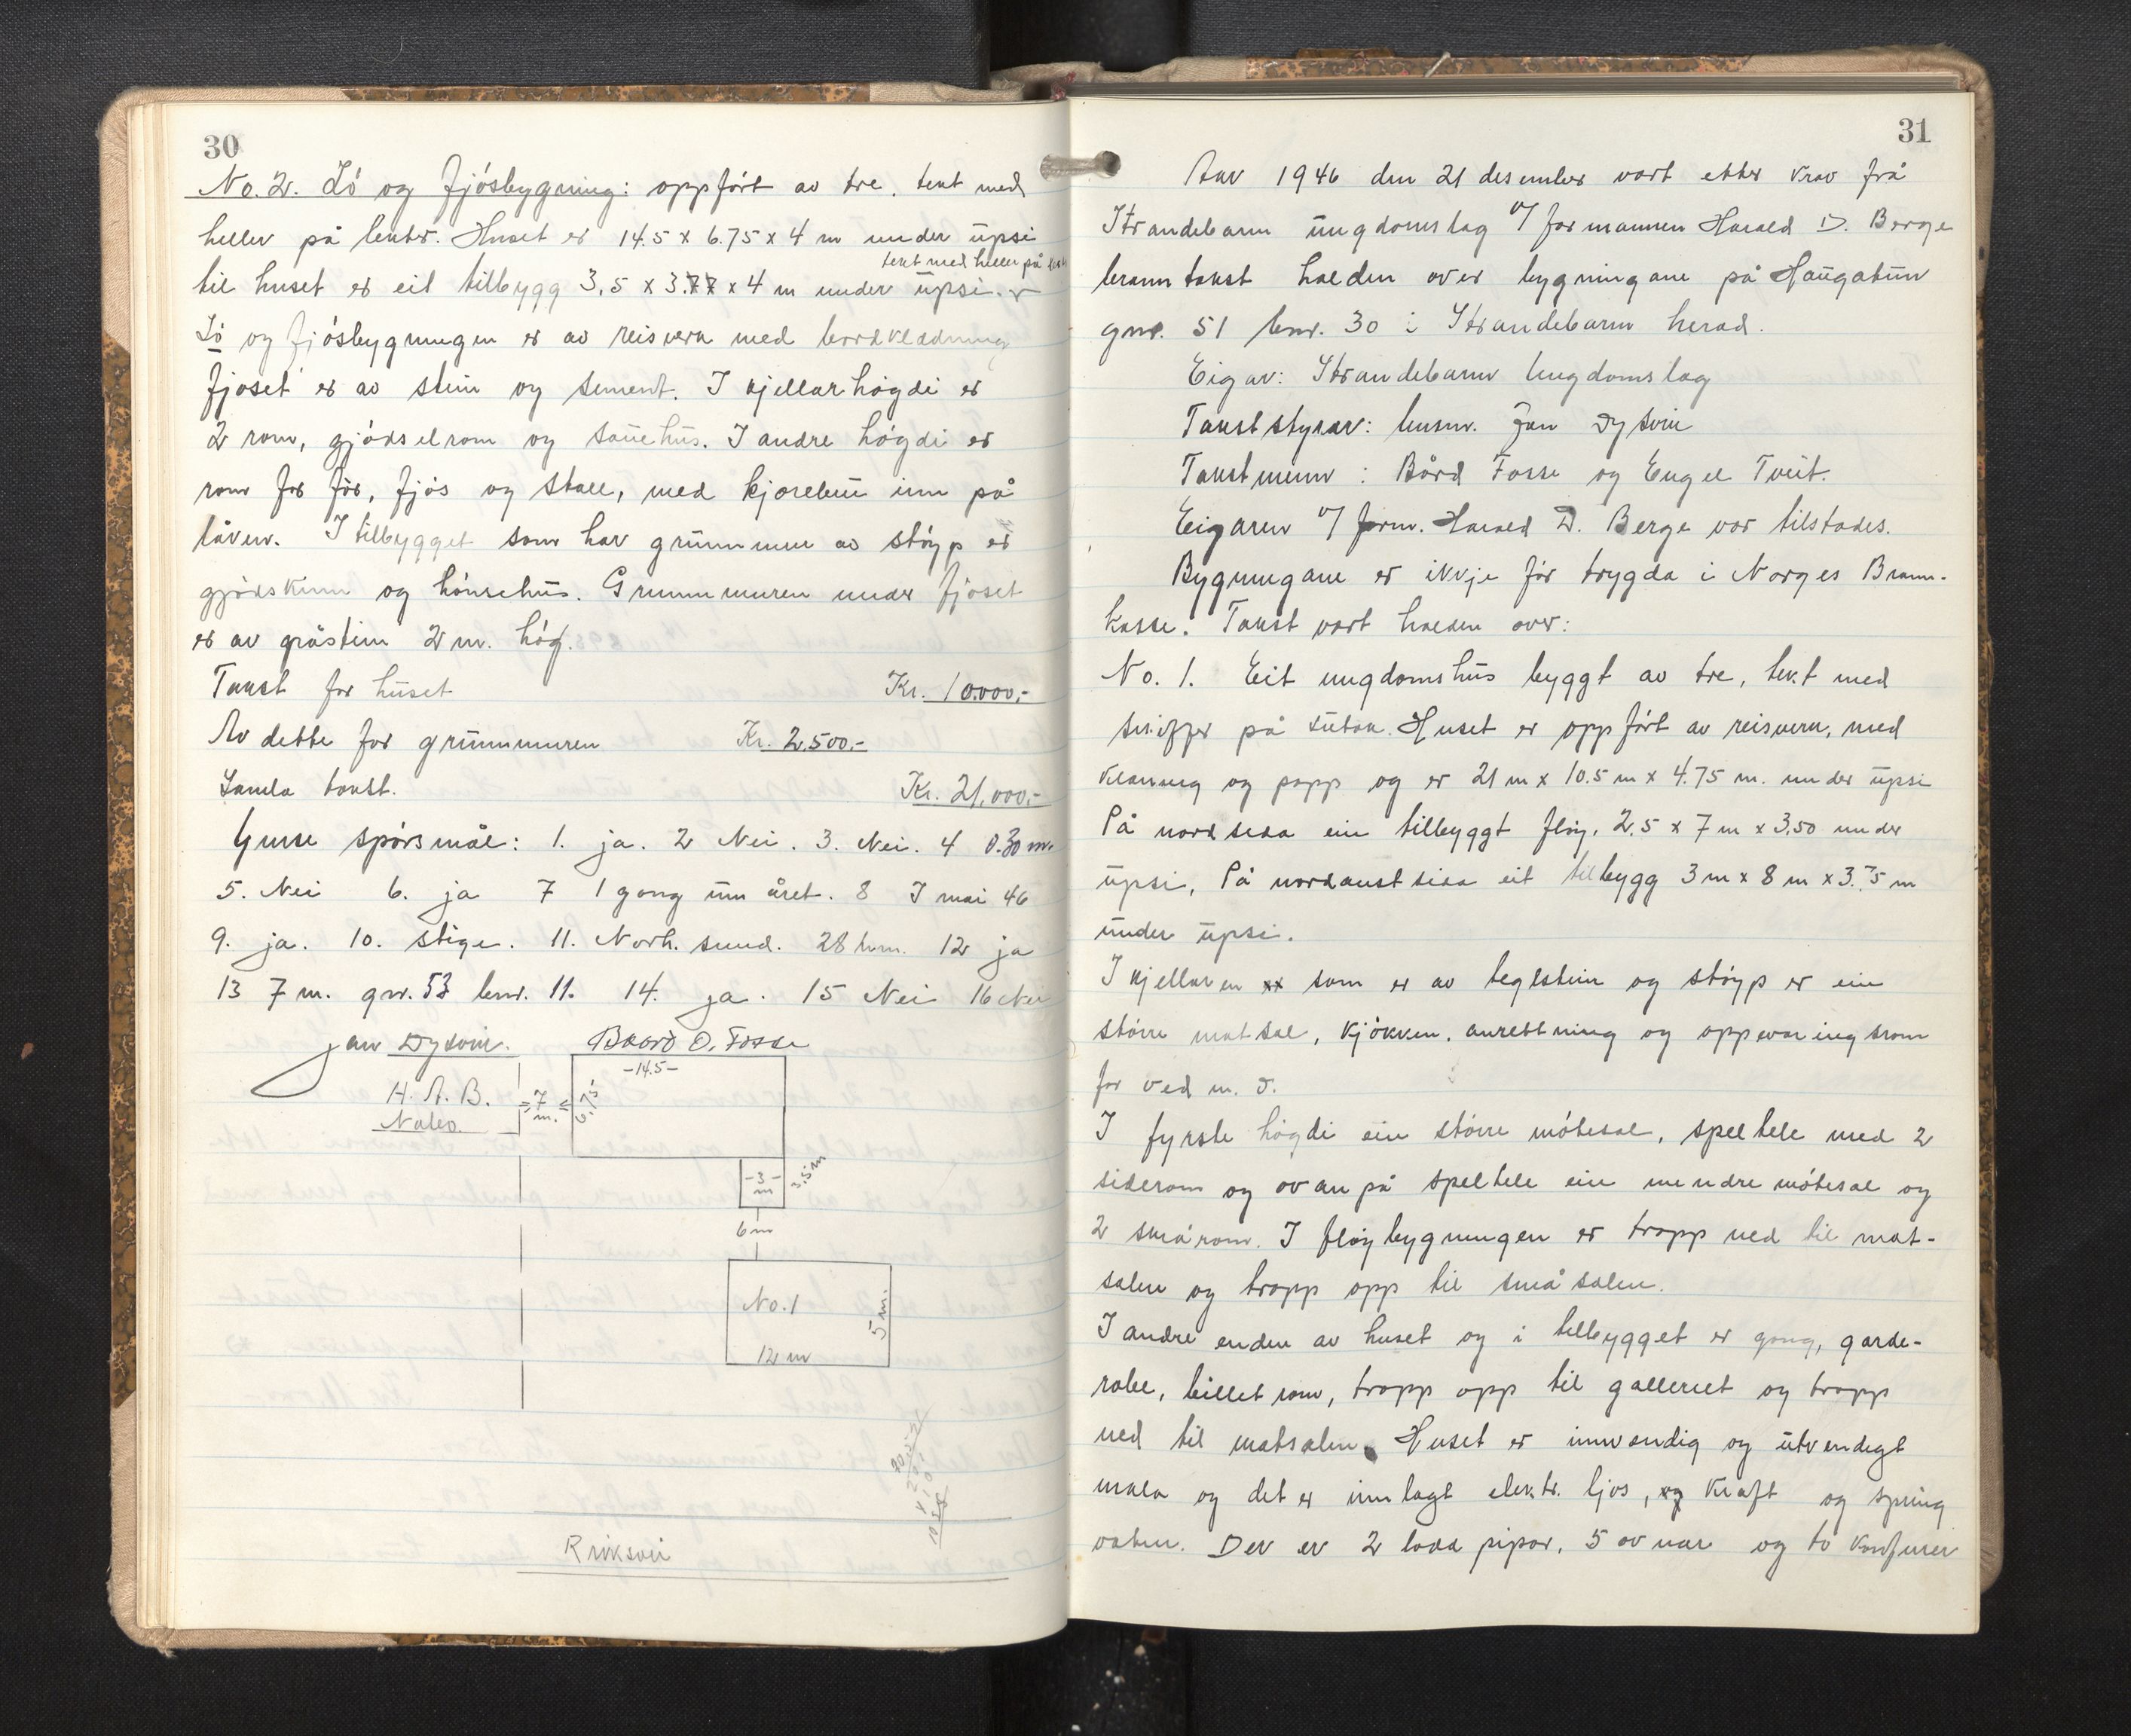 30
No. 2. Lö og fjósbygning: oppført av tre, tekt med
heller på lekter. Huset er 14.5 x 6.75 x 4 m under upsi
tekt med heller på lekt
til huset er eit tilbygg 3,5 x 3. x 4 m under upsi.
Lö og fjósbygningen er av reisverk med bordklædning
fjoset er av stein og sement. I kjellarhögdi er
2 rom, gjødselrom og sauehus. I andre högdi er
rom for för, fjös og stall, med kjorebru inn på
låven. I tilbygget som har grunnmur av støyp er
gjødskinn og hönsehus. Grunnmuren under fjöset
er av gråstein 2 m. hög.
Takst for huset Kr. 10.000,-
Av dette for grunnmuren Kr. 2.500.-
Samla takst. Kr. 21.000.-
Ymse spørsmål: 1. ja. 2 Nei. 3. Nei. 4 0.30 m.
5. Nei 6. ja 7 1 gong um året. 8 I mai 46
9. ja. 10. stige. 11. Norh.sund. 28 km. 12 ja
13 7 m. gnr. 53 bnr. 11. 14. ja. 15 Nei 16 Nei
Jan Dysvin. Baard O. Fosse
-14.5-
H. A. B.
Nabo
7 m.
6.75
-3-
m
3.5 m
6 m
No. 1
5 m.
12 m
Riksvei
31
Aar 1946 den 21 desember vart etter krav frå
Strandebarm ungdomslag v/ formannen Harald D. Berge
branntakst halden over bygningane på Haugatun
gnr. 51 bnr. 30 i Strandebarm herad.
Eigar: Strandebarm Ungdomslag
Takststyrar: lensm. Jan Dysvin
Takstmenn: Bård Fosse og Engel Tveit.
Eigaren v/ form. Harald D. Berge var tilstades.
Bygningane er ikkje før trygda i Norges Brann-
kasse. Takst vart halden over:
No. 1. Eit ungdomshus byggt av tre, tekt med
skiffer på sutak. Huset er oppført av reisverk, med
klæning og papp og er 21 m x 10.5 m x 4.75 m. under upsi
På nordsida ein tilbyggt fløy, 2.5 x 7 m x 3.50 under
upsi, På nordaustsida eit tilbygg 3 m x 8 m x 3.75 m
under upsi.
I kjellaren som er av teglstein og støyp er ein
større matsal, kjökken, anrettning og oppvaringsrom
for ved m. v.
I fyrste högdi ein större mötesal, speltele med 2
siderom og ovanpå speltele ein mindre mötesal og
2 smårom. I fløybygningen er tropp ned til mat-
salen og tropp opp til småsalen.
I andre enden av huset og i tilbygget er gong, garde-
robe, billetrom, tropp opp til galleriet og tropp
ned til matsalen. Huset er innvendig og utvendigt
mala og det er innlagt elektr. ljos, kraft og spring
vatn. Der er 2 lodd pipor, 5 ovnar og to komfurer